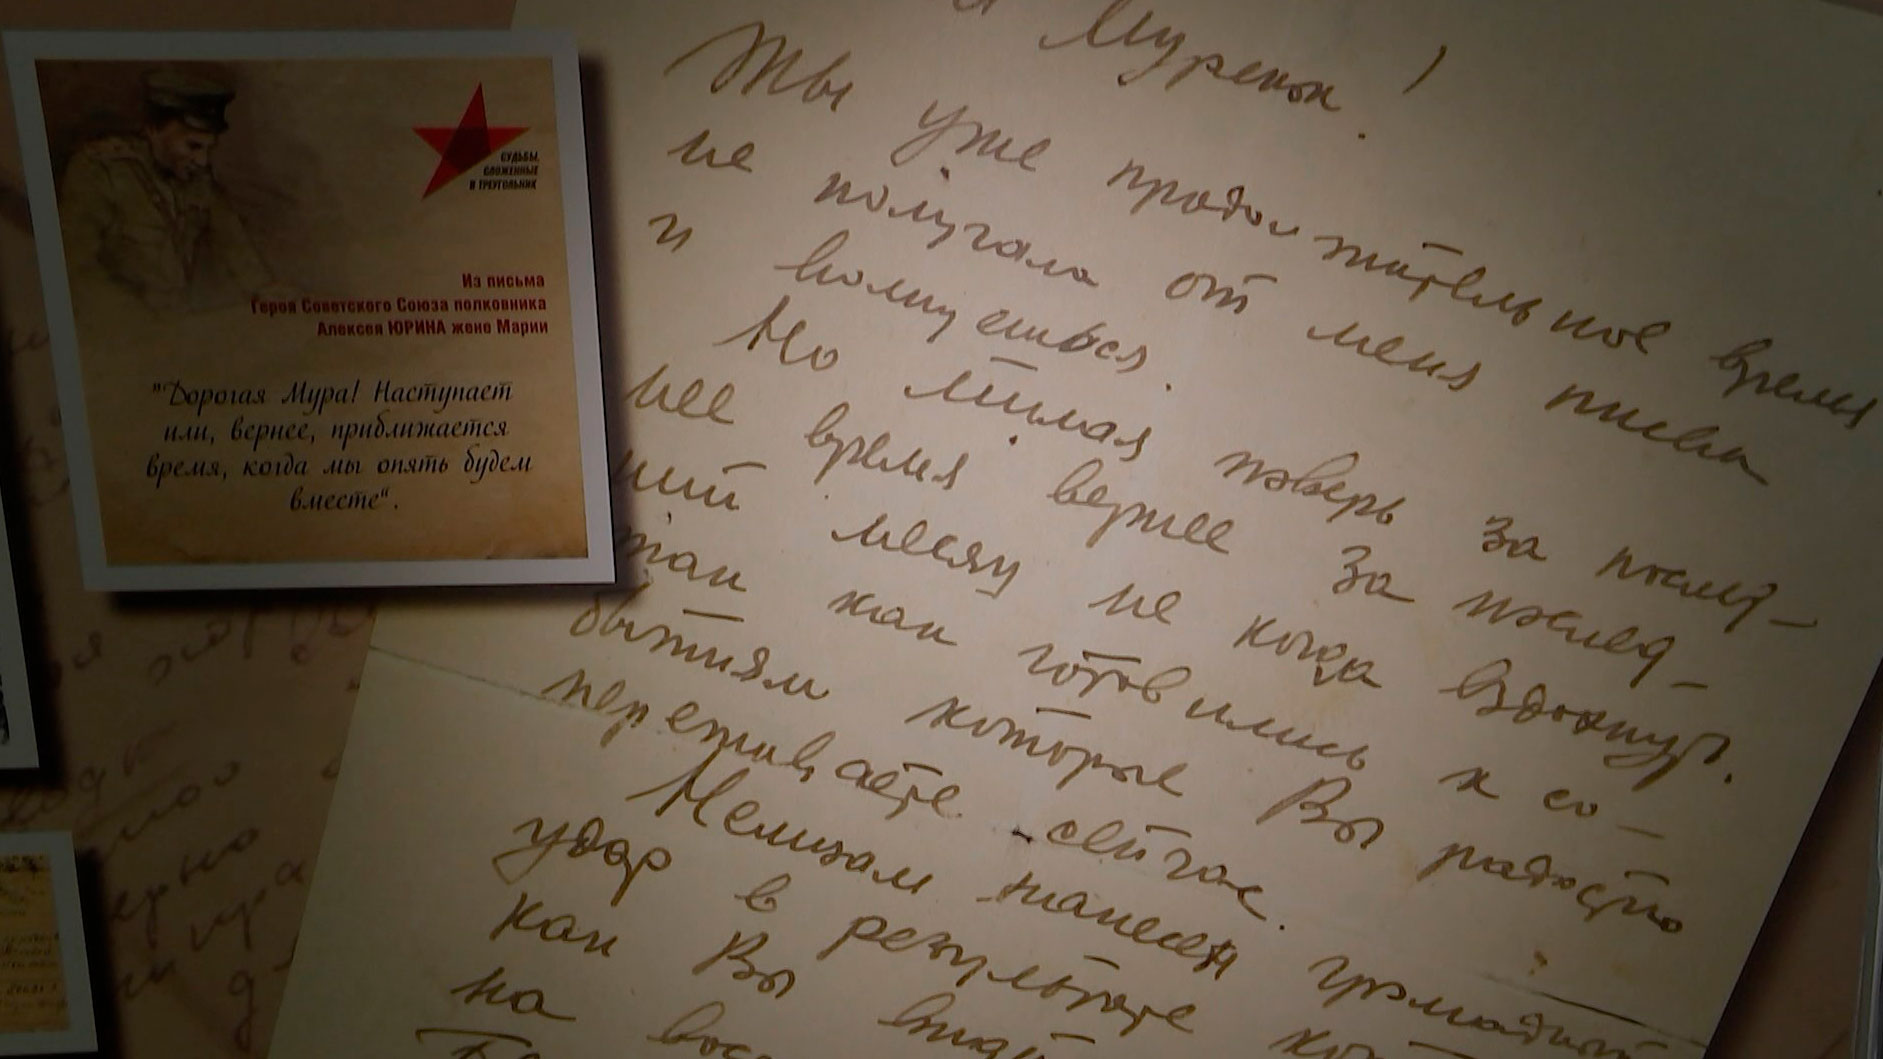 СУДЬБЫ,
СЛОЖЕННЫЕ
В ТРЕУГОЛЬНИК
Из письма
Героя Советского Союза полковника
Алексея ЮРИНА жене Марии
"Дорогая Мура! Наступает
или, вернее, приближается
время, когда мы опять будем
вместе".
Муренок!
Ты уже продолжительное время
не получала от меня письма
и волнуешься.
Но милая поверь за послед-
нее время вернее за послед-
ний месяц не когда вздохнуть.
так как готовились к со-
бытиям которые Вы радостно
переживаете сейчас.
Немцам нанесен громадный
удар в результате
как Вы
на